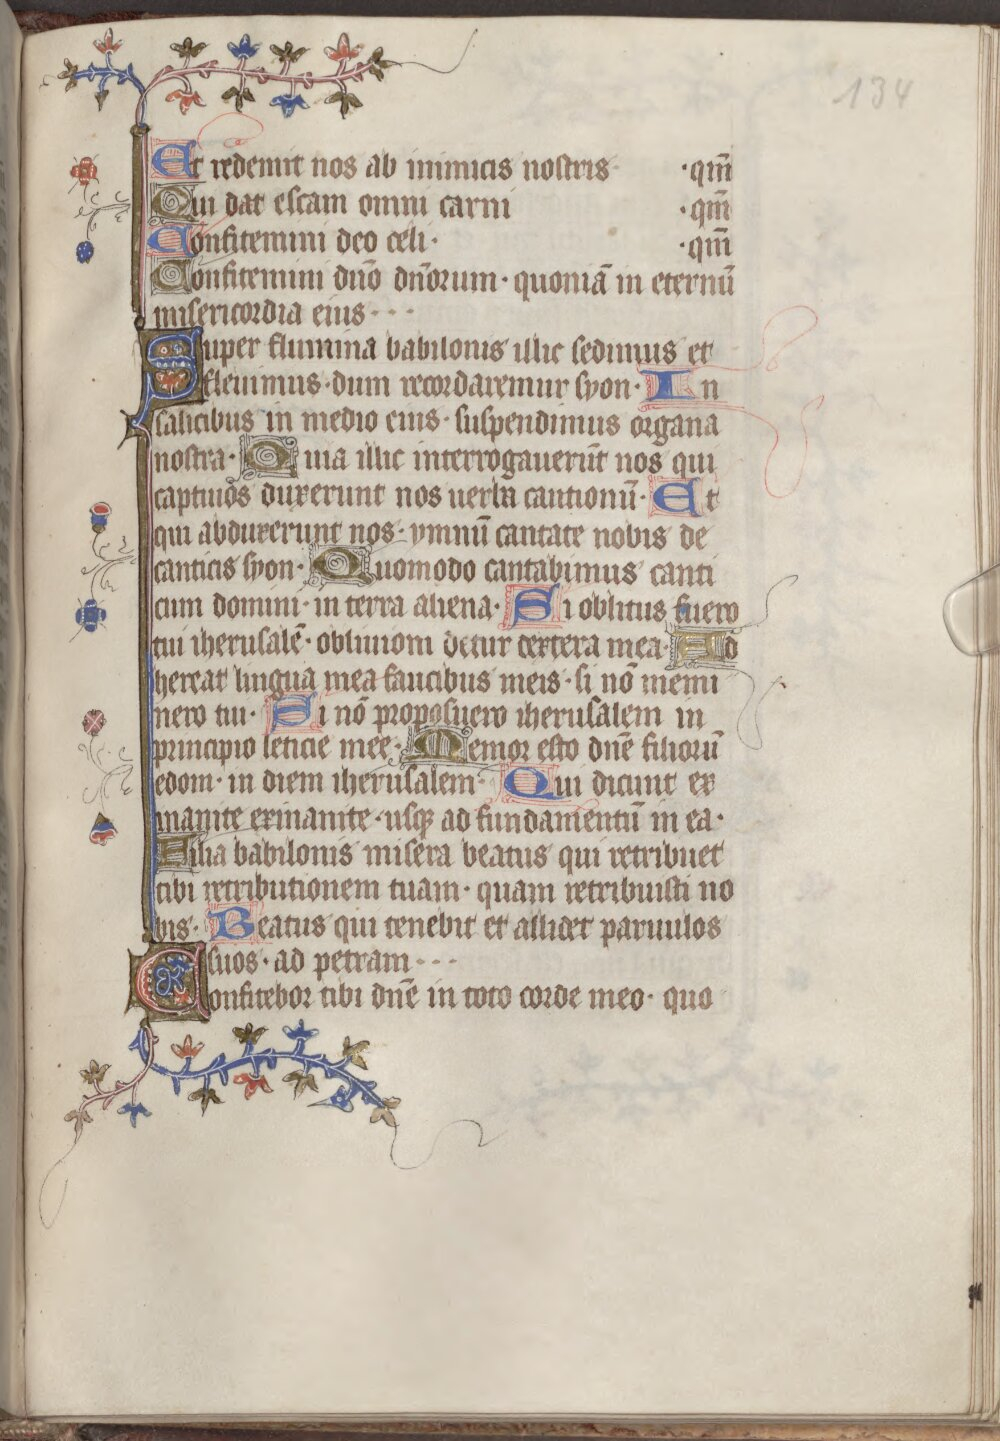 134
Et redemit nos ab inimicis nostris · qm̄
Qui dat escam omni carni · qm̄
Confitemini deo celi · · qm̄
Confitemini dn̄o dn̄orum · quoniā in eternū
misericordia eius · · ·
Super flumina babilonis illic sedimus et
fleuimus · dum recordaremur syon · In
salicibus in medio eius · suspendimus organa
nostra · Quia illic interrogauerūt nos qui
captiuos duxerunt nos uerba cantionū · Et
qui abduxerunt nos · ymnū cantate nobis de
canticis syon · Quomodo cantabimus canti
cum domini · in terra aliena · Si oblitus fuero
tui iherusalē · obliuioni detur dextera mea · Ad
hereat lingua mea faucibus meis · si nō memi
nero tui · Si nō proposuero iherusalem in
principio leticie mee · Memor esto dn̄e filiorū
edom · in diem iherusalem · Qui dicunt ex
inanite exinanite · usqꝫ ad fundamentū in ea ·
Filia babilonis misera beatus qui retribuet
tibi retributionem tuam · quam retribuisti no
bis · Beatus qui tenebit et allidet paruulos
suos · ad petram · · ·
Confitebor tibi dn̄e in toto corde meo · quo